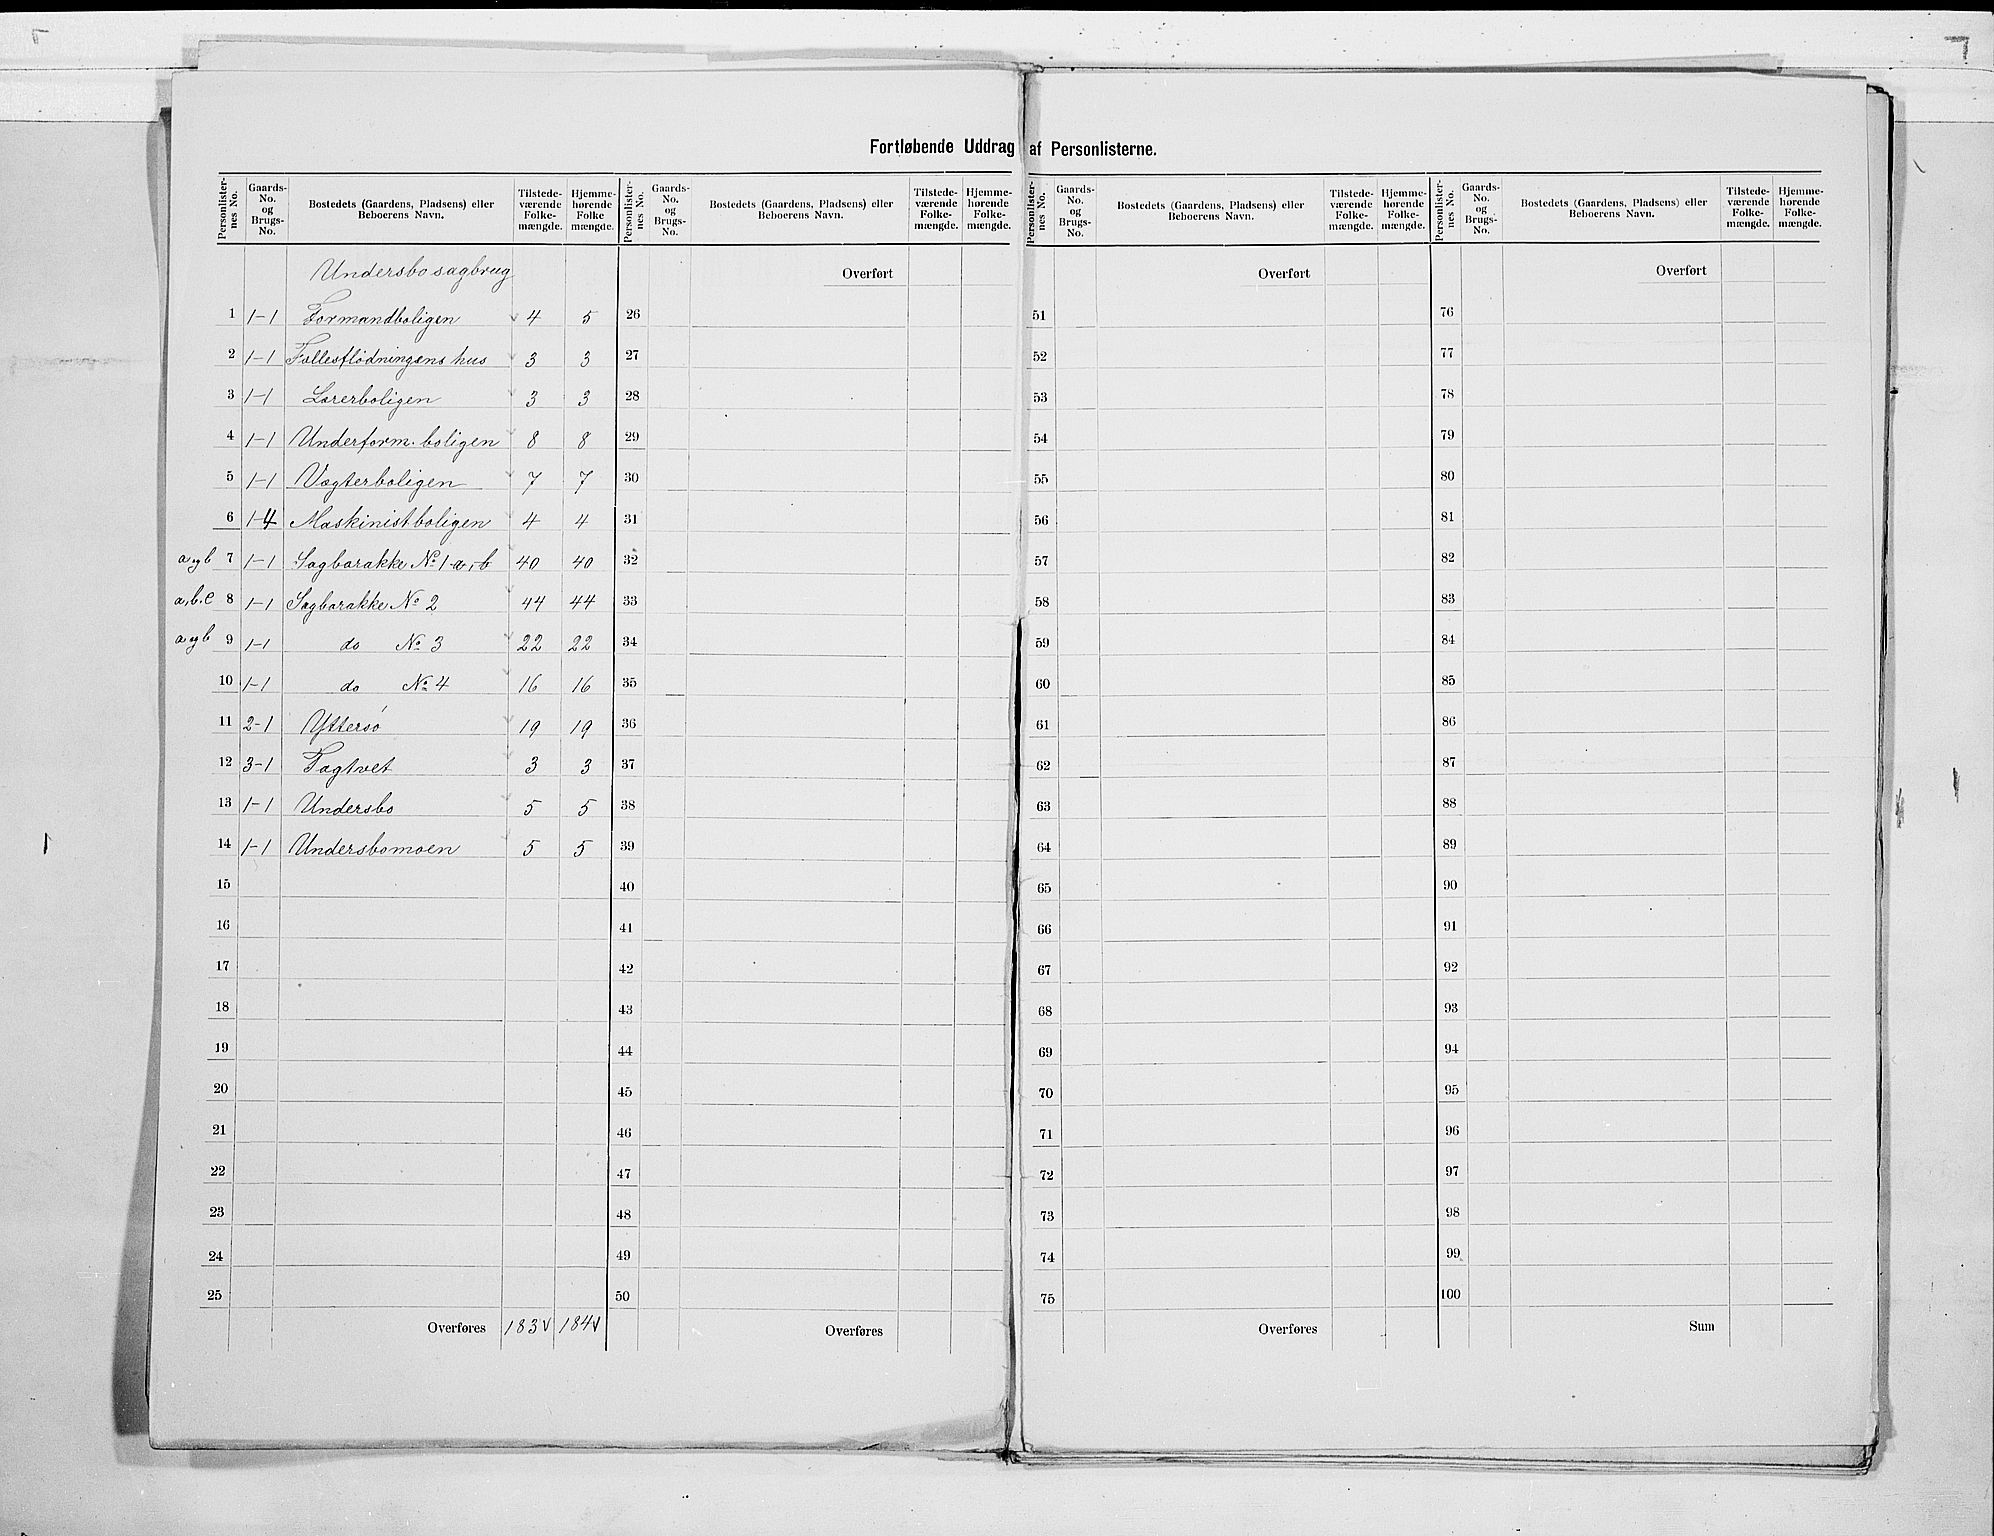 Fortløbende Uddrag af Personlisterne.
Personlisternes No. | Gaards-No. og Brugs-No. | Bostedets (Gaardens, Pladsens) eller Beboerens Navn. | Tilstedeværende Folkemængde. | Hjemmehørende Folkemængde.
Personlisternes No. | Gaards-No. og Brugs-No. | Bostedets (Gaardens, Pladsens) eller Beboerens Navn. | Tilstedeværende Folkemængde. | Hjemmehørende Folkemængde.
Personlisternes No. | Gaards-No. og Brugs-No. | Bostedets (Gaardens, Pladsens) eller Beboerens Navn. | Tilstedeværende Folkemængde. | Hjemmehørende Folkemængde.
Personlisternes No. | Gaards-No. og Brugs-No. | Bostedets (Gaardens, Pladsens) eller Beboerens Navn. | Tilstedeværende Folkemængde. | Hjemmehørende Folkemængde.
Undersbo sagbrug | Overført | Overført | Overført
1 | 1-1 | Formandboligen | 4 | 5 | 26 | 51 | 76
2 | 1-1 | Fællesflødningens hus | 3 | 3 | 27 | 52 | 77
3 | 1-1 | Lærerboligen | 3 | 3 | 28 | 53 | 78
4 | 1-1 | Underform. boligen | 8 | 8 | 29 | 54 | 79
5 | 1-1 | Vægterboligen | 7 | 7 | 30 | 55 | 80
6 | 1-4 | Maskinistboligen | 4 | 4 | 31 | 56 | 81
a og b 7 | 1-1 | Sagbarakke No 1 a, b | 40 | 40 | 32 | 57 | 82
a, b, c 8 | 1-1 | Sagbarakke No 2 | 44 | 44 | 33 | 58 | 83
a og b 9 | 1-1 | do No 3 | 22 | 22 | 34 | 59 | 84
10 | 1-1 | do No 4 | 16 | 16 | 35 | 60 | 85
11 | 2-1 | Yttersø | 19 | 19 | 36 | 61 | 86
12 | 3-1 | Fagtvet | 3 | 3 | 37 | 62 | 87
13 | 1-1 | Undersbo | 5 | 5 | 38 | 63 | 88
14 | 1-1 | Undersbomoen | 5 | 5 | 39 | 64 | 89
15 | 40 | 65 | 90
16 | 41 | 66 | 91
17 | 42 | 67 | 92
18 | 43 | 68 | 93
19 | 44 | 69 | 94
20 | 45 | 70 | 95
21 | 46 | 71 | 96
22 | 47 | 72 | 97
23 | 48 | 73 | 98
24 | 49 | 74 | 99
25 | 50 | 75 | 100
Overføres | 183 | 184 | Overføres | Overføres | Sum